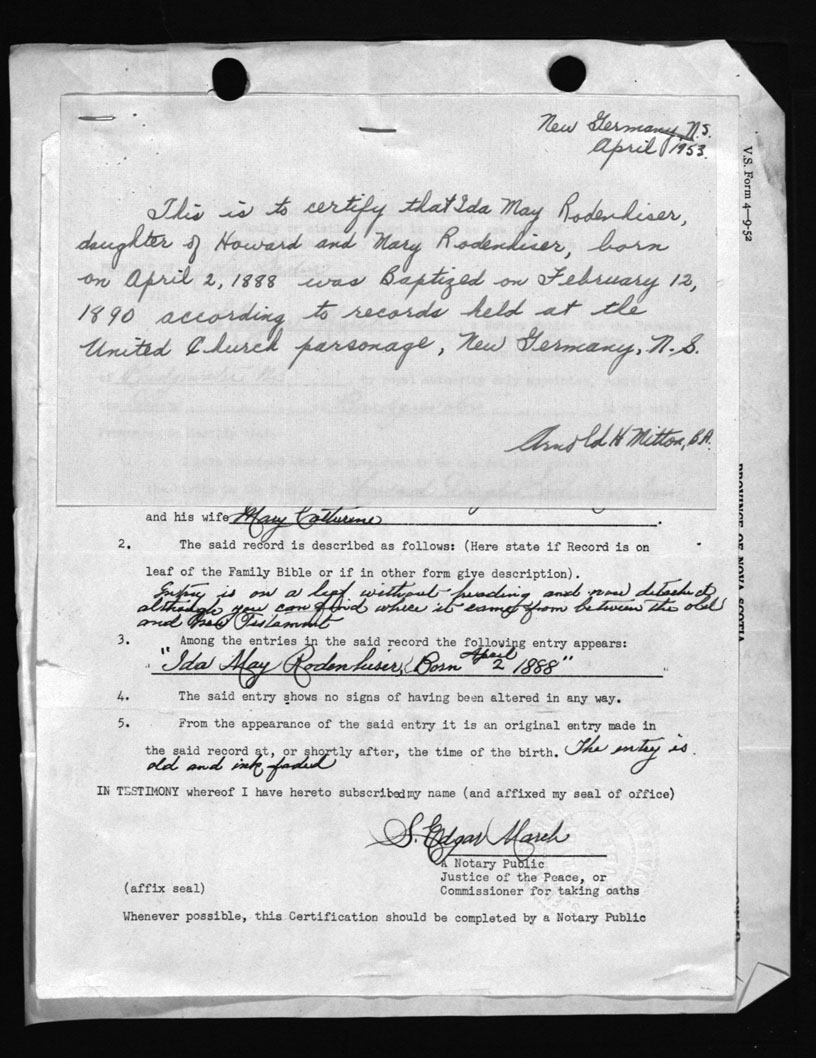 New Germany, N.S.
April 1953.
V.S. Form 4—9-52
This is to certify that Ida May Rodenhiser,
daughter of Howard and Mary Rodenhiser, born
on April 2, 1888 was Baptized on February 12,
1890 according to records held at the
United Church parsonage, New Germany, N.S.
Arnold H Mitton, B.A.
PROVINCE OF NOVA SCOTIA
and his wife Mary Catherine
2. The said record is described as follows: (Here state if Record is on
leaf of the Family Bible or if in other form give description).
Entry is on a leaf without heading and now detached
although you can find where it came from between the old
and New Testament
3. Among the entries in the said record the following entry appears:
"Ida May Rodenhiser, Born April 2 1888"
4. The said entry shows no signs of having been altered in any way.
5. From the appearance of the said entry it is an original entry made in
the said record at, or shortly after, the time of the birth. The entry is
old and ink faded
IN TESTIMONY whereof I have hereto subscribed my name (and affixed my seal of office)
S. Edgar March
A Notary Public
Justice of the Peace, or
(affix seal) Commissioner for taking oaths
Whenever possible, this Certification should be completed by a Notary Public